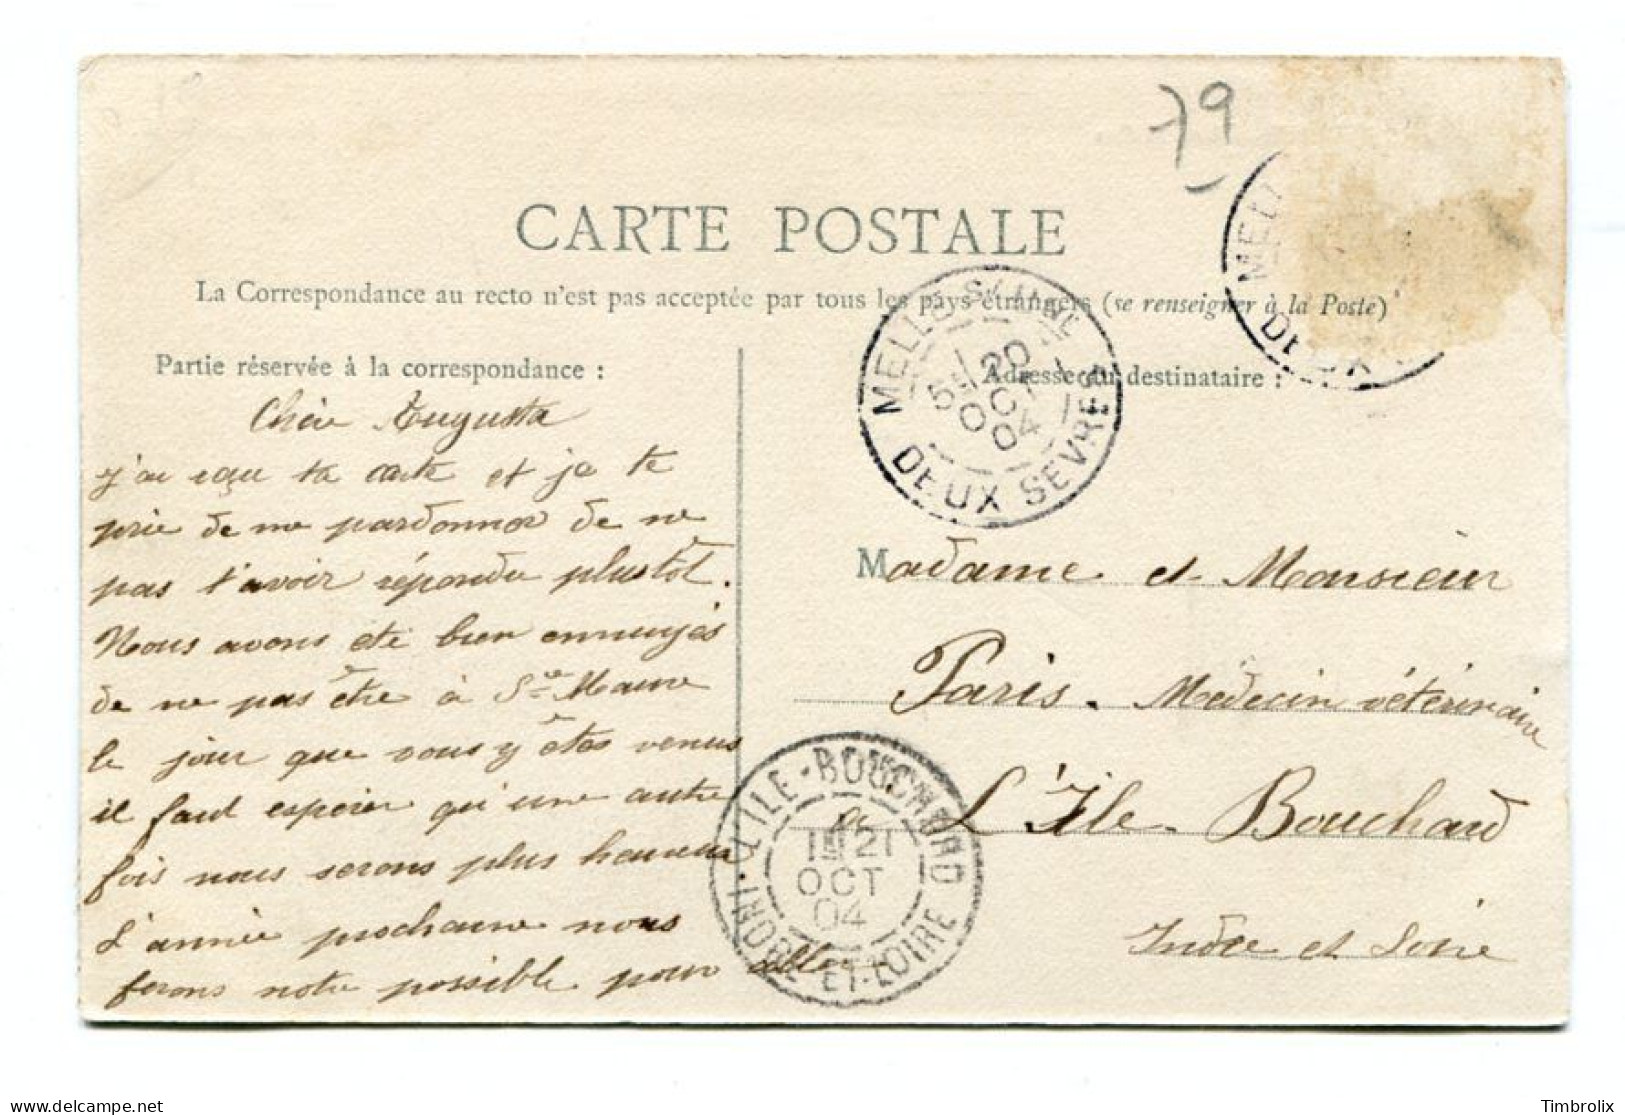 79
CARTE POSTALE
La Correspondance au recto n'est pas acceptée par tous les pays étrangers (se renseigner à la Poste)
Partie réservée à la correspondance :
Adresse du destinataire :
Chère Augusta
j'ai reçu ta carte et je te
prie de me pardonner de ne
pas t'avoir répondu plustôt.
Nous avons été bien ennuyés
de ne pas être à Ste Maure
le jour que vous y êtes venus
il faut espérer qu'une autre
fois nous serons plus heureux
L'année prochaine nous
ferons notre possible pour aller
MELLE
DEUX SEVRES
20
OCT
04
MELL
DEUX
Madame et Monsieur
Paris. Medecin vétérinaire
à L'Ile-Bouchard
Indre et Loire
L'ILE-BOUCHARD
21
OCT
04
INDRE-ET-LOIRE
delcampe.net
Timbrolix